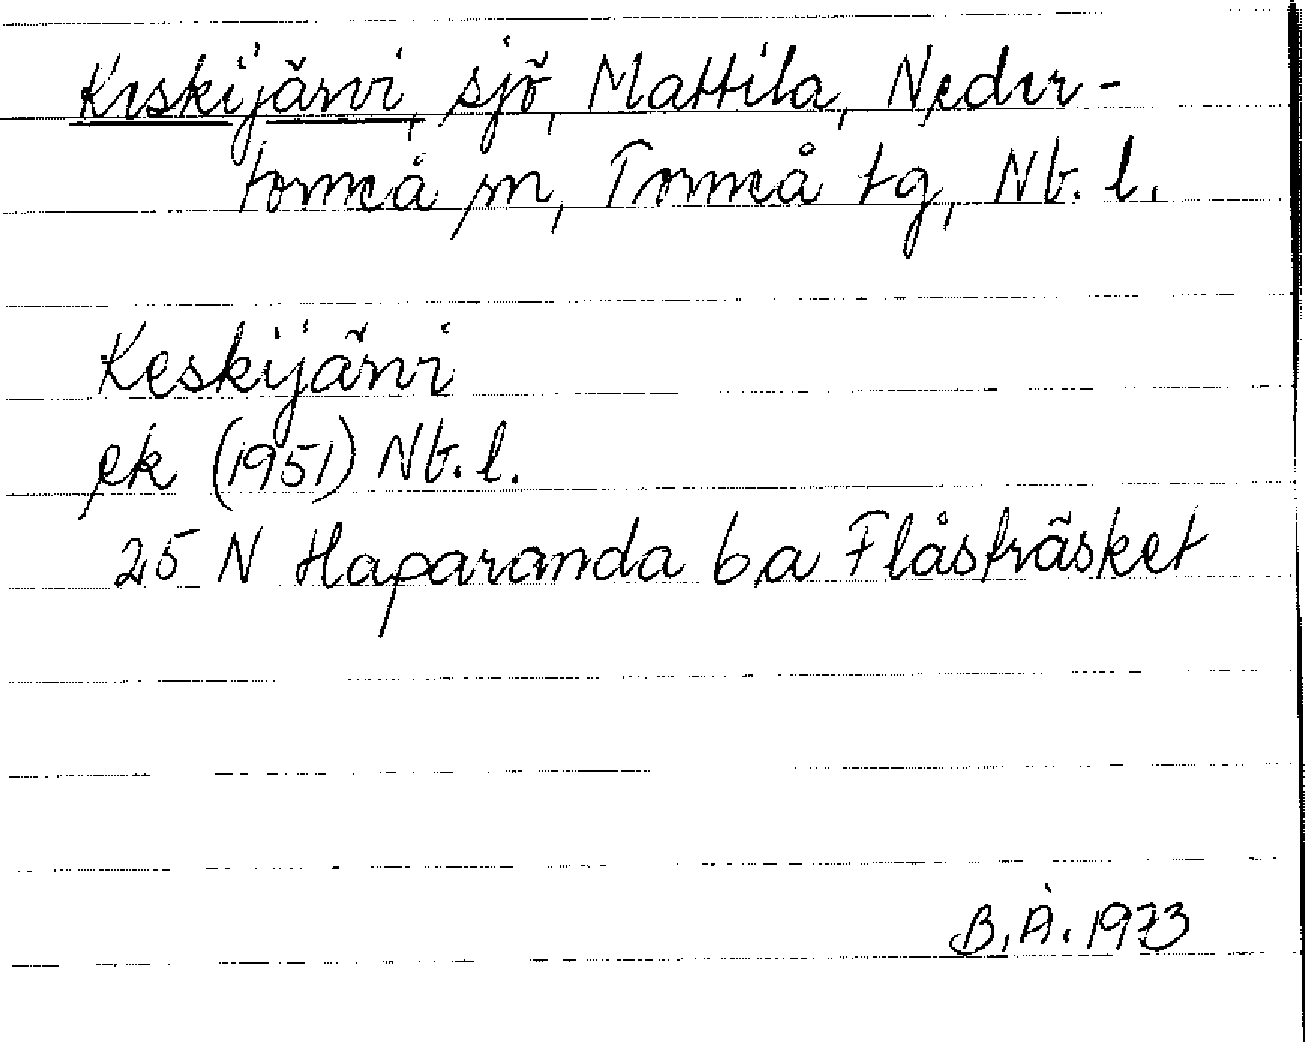 Keskijärvi, sjö, Mattila, Neder-
torneå sn, Torneå tg, Nb. l.
Keskijärvi
ek (1951) Nb. l.
25 N Haparanda b,a Flåsträsket
B.Å. 1973